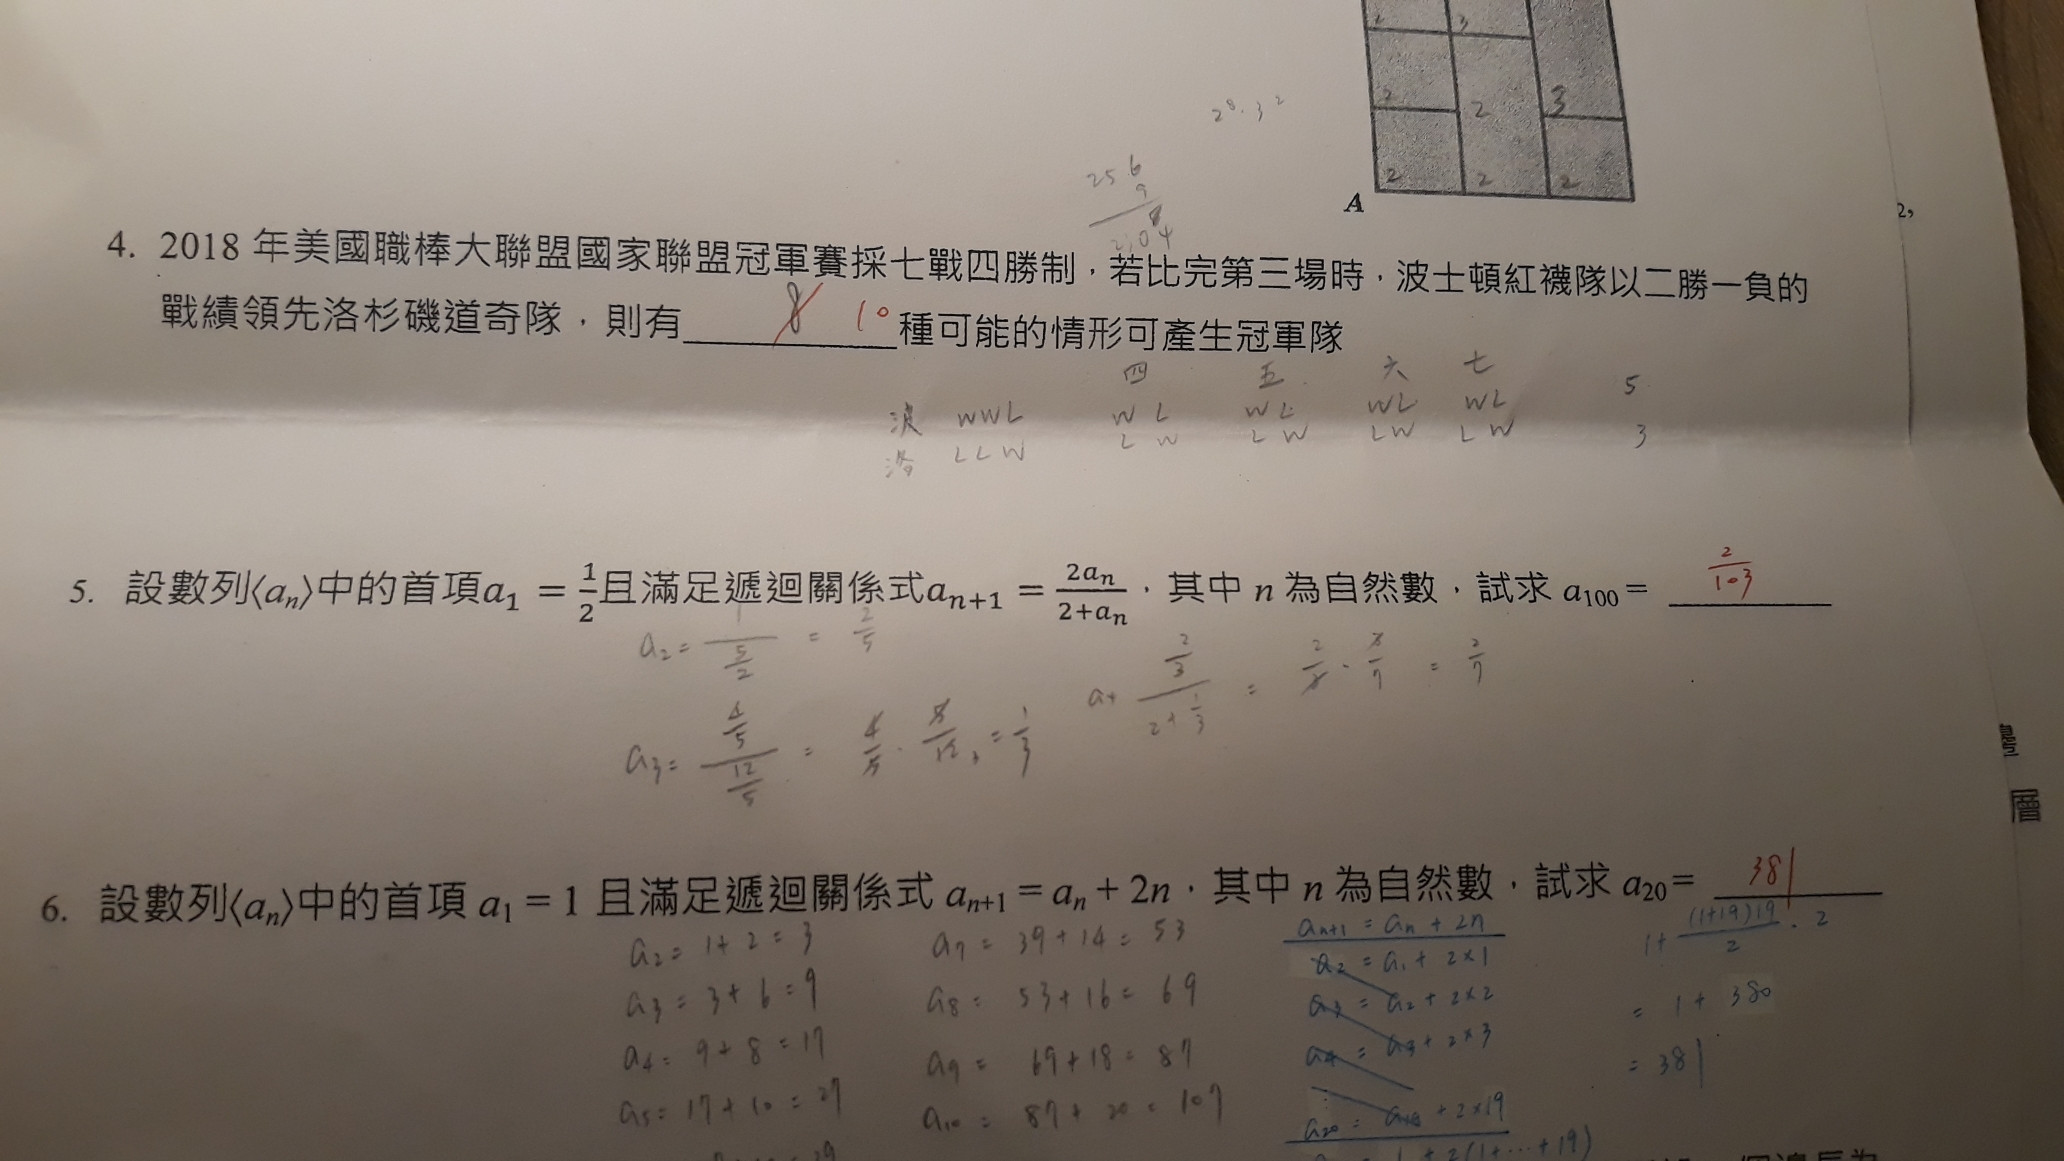 2 3
2 2 3
2 2 2
A
2⁸·3²
256
9
2,
4. 2018 年美國職棒大聯盟國家聯盟冠軍賽採七戰四勝制，若比完第三場時，波士頓紅襪隊以二勝一負的
戰績領先洛杉磯道奇隊，則有 8 10 種可能的情形可產生冠軍隊
四 五 六 七
波 WWL WL WL WL WL 5
洛 LLW LW LW LW LW 3
5. 設數列⟨aₙ⟩中的首項a₁ = 1/2且滿足遞迴關係式aₙ₊₁ = 2aₙ/(2+aₙ)，其中 n 為自然數，試求 a₁₀₀ = 2/103
a₂ = 1/(5/2) = 2/5
a₃ = (4/5)/(12/5) = 4/5 · 5/12 = 1/3
a₄ (2/3)/(2+1/3) = 2/3 · 3/7 = 2/7
邊
層
6. 設數列⟨aₙ⟩中的首項 a₁ = 1 且滿足遞迴關係式 aₙ₊₁ = aₙ + 2n，其中 n 為自然數，試求 a₂₀ = 381
a₂ = 1+2 = 3
a₃ = 3+6 = 9
a₄ = 9+8 = 17
a₅ = 17+10 = 27
a₇ = 39+14 = 53
a₈ = 53+16 = 69
a₉ = 69+18 = 87
a₁₀ = 87+20 = 107
aₙ₊₁ = aₙ + 2n
a₂ = a₁ + 2×1
a₃ = a₂ + 2×2
a₄ = a₃ + 2×3
a₂₀ = a₁₉ + 2×19
1+2(1+…+19)
1+ (1+19)19/2 · 2
= 1+380
= 381